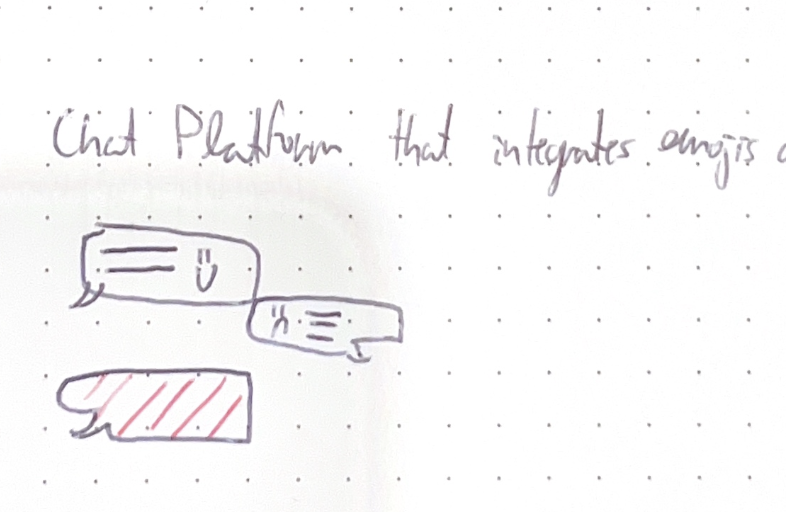 Chat Platform that integrates emojis